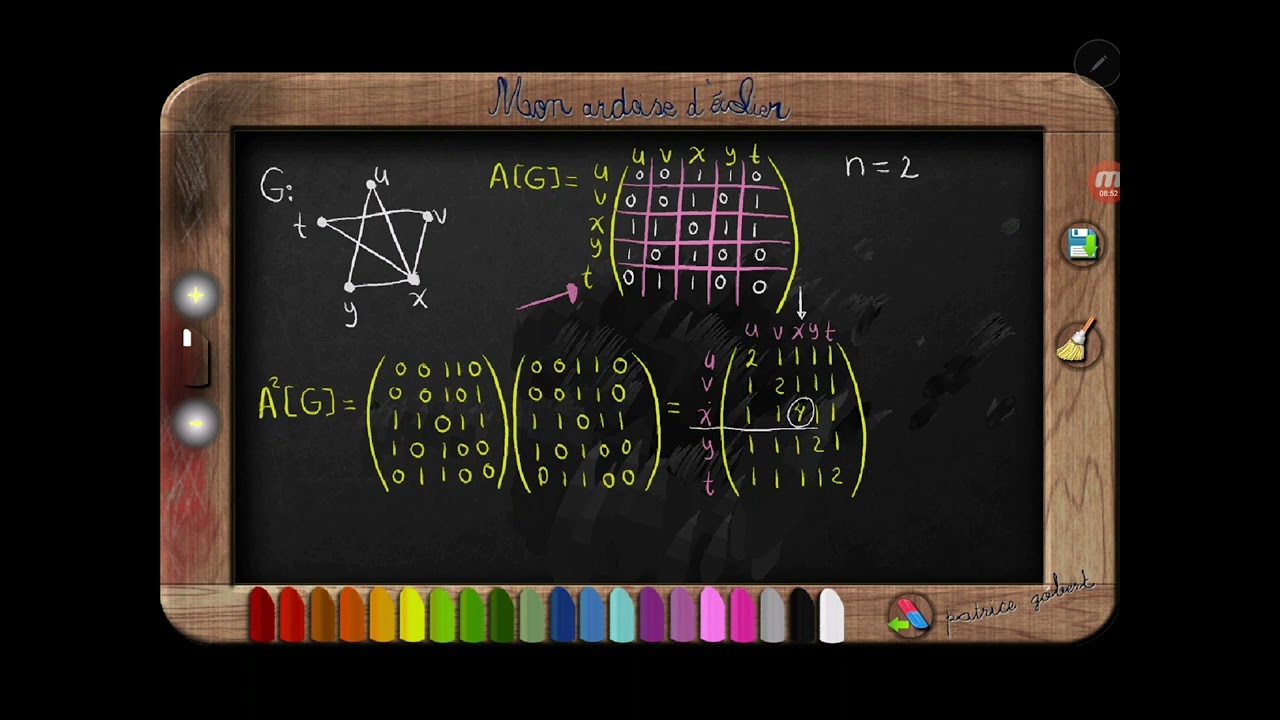 Mon ardoise d'écolier
08:52
G:
u
t
v
y
x
n=2
u v x y t
A[G]= u 0 0 1 1 0
v 0 0 1 0 1
x 1 1 0 1 1
y 1 0 1 0 0
t 0 1 1 0 0
u v x y t
A²[G]=
0 0 1 1 0
0 0 1 0 1
1 1 0 1 1
1 0 1 0 0
0 1 1 0 0
0 0 1 1 0
0 0 1 1 0
1 1 0 1 1
1 0 1 0 0
0 1 1 0 0
=
u 2 1 1 1 1
v 1 2 1 1 1
x 1 1 4 1 1
y 1 1 1 2 1
t 1 1 1 1 2
patrice gobert